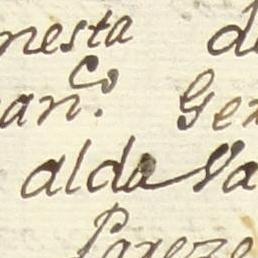 nesta d
an.co Ge
alda Va
Pareze